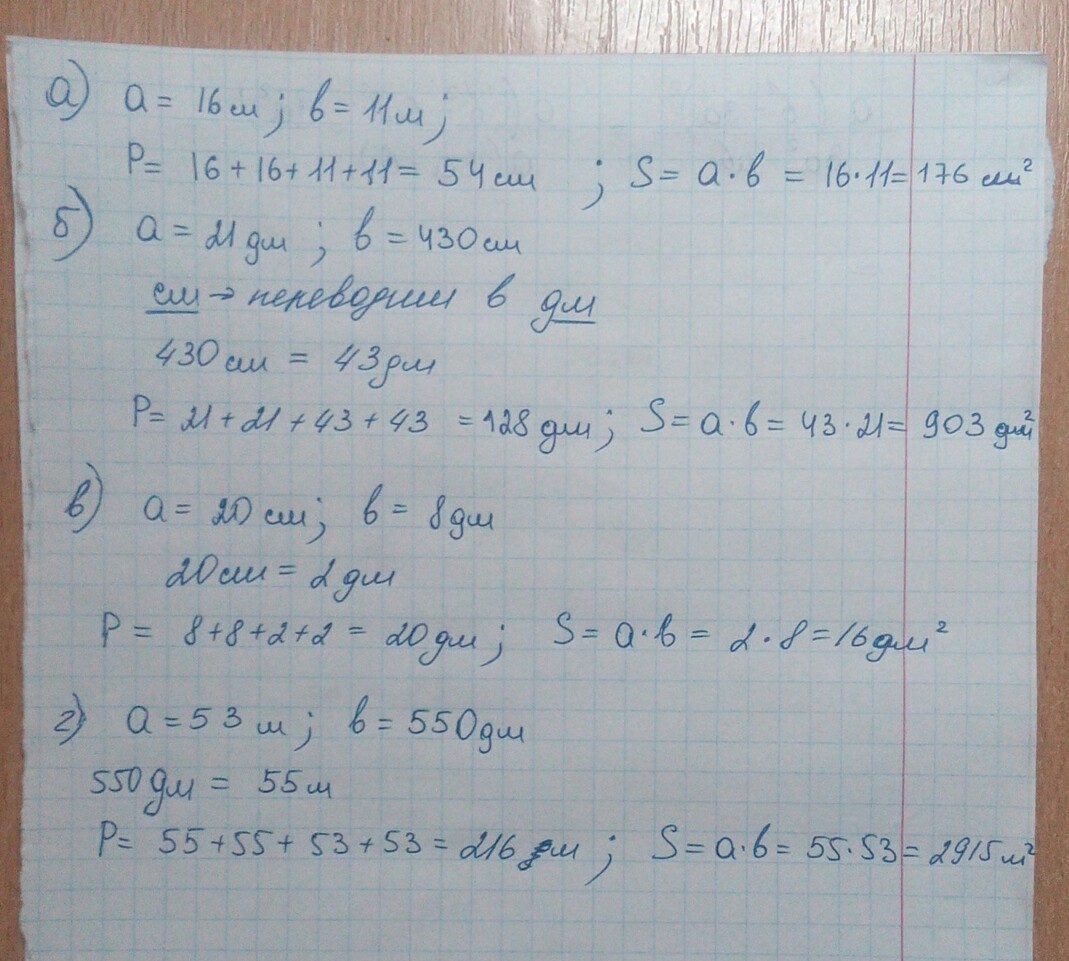 а) a = 16 см; b = 11 м;
P = 16 + 16 + 11 + 11 = 54 см ; S = a · b = 16 · 11 = 176 см²
б) a = 21 дм ; b = 430 см
см → переводим в дм
430 см = 43 дм
P = 21 + 21 + 43 + 43 = 128 дм ; S = a · b = 43 · 21 = 903 дм²
в) a = 20 см; b = 8 дм
20 см = 2 дм
P = 8 + 8 + 2 + 2 = 20 дм ; S = a · b = 2 · 8 = 16 дм²
г) a = 53 м ; b = 550 дм
550 дм = 55 м
P = 55 + 55 + 53 + 53 = 216 м ; S = a · b = 55 · 53 = 2915 м²